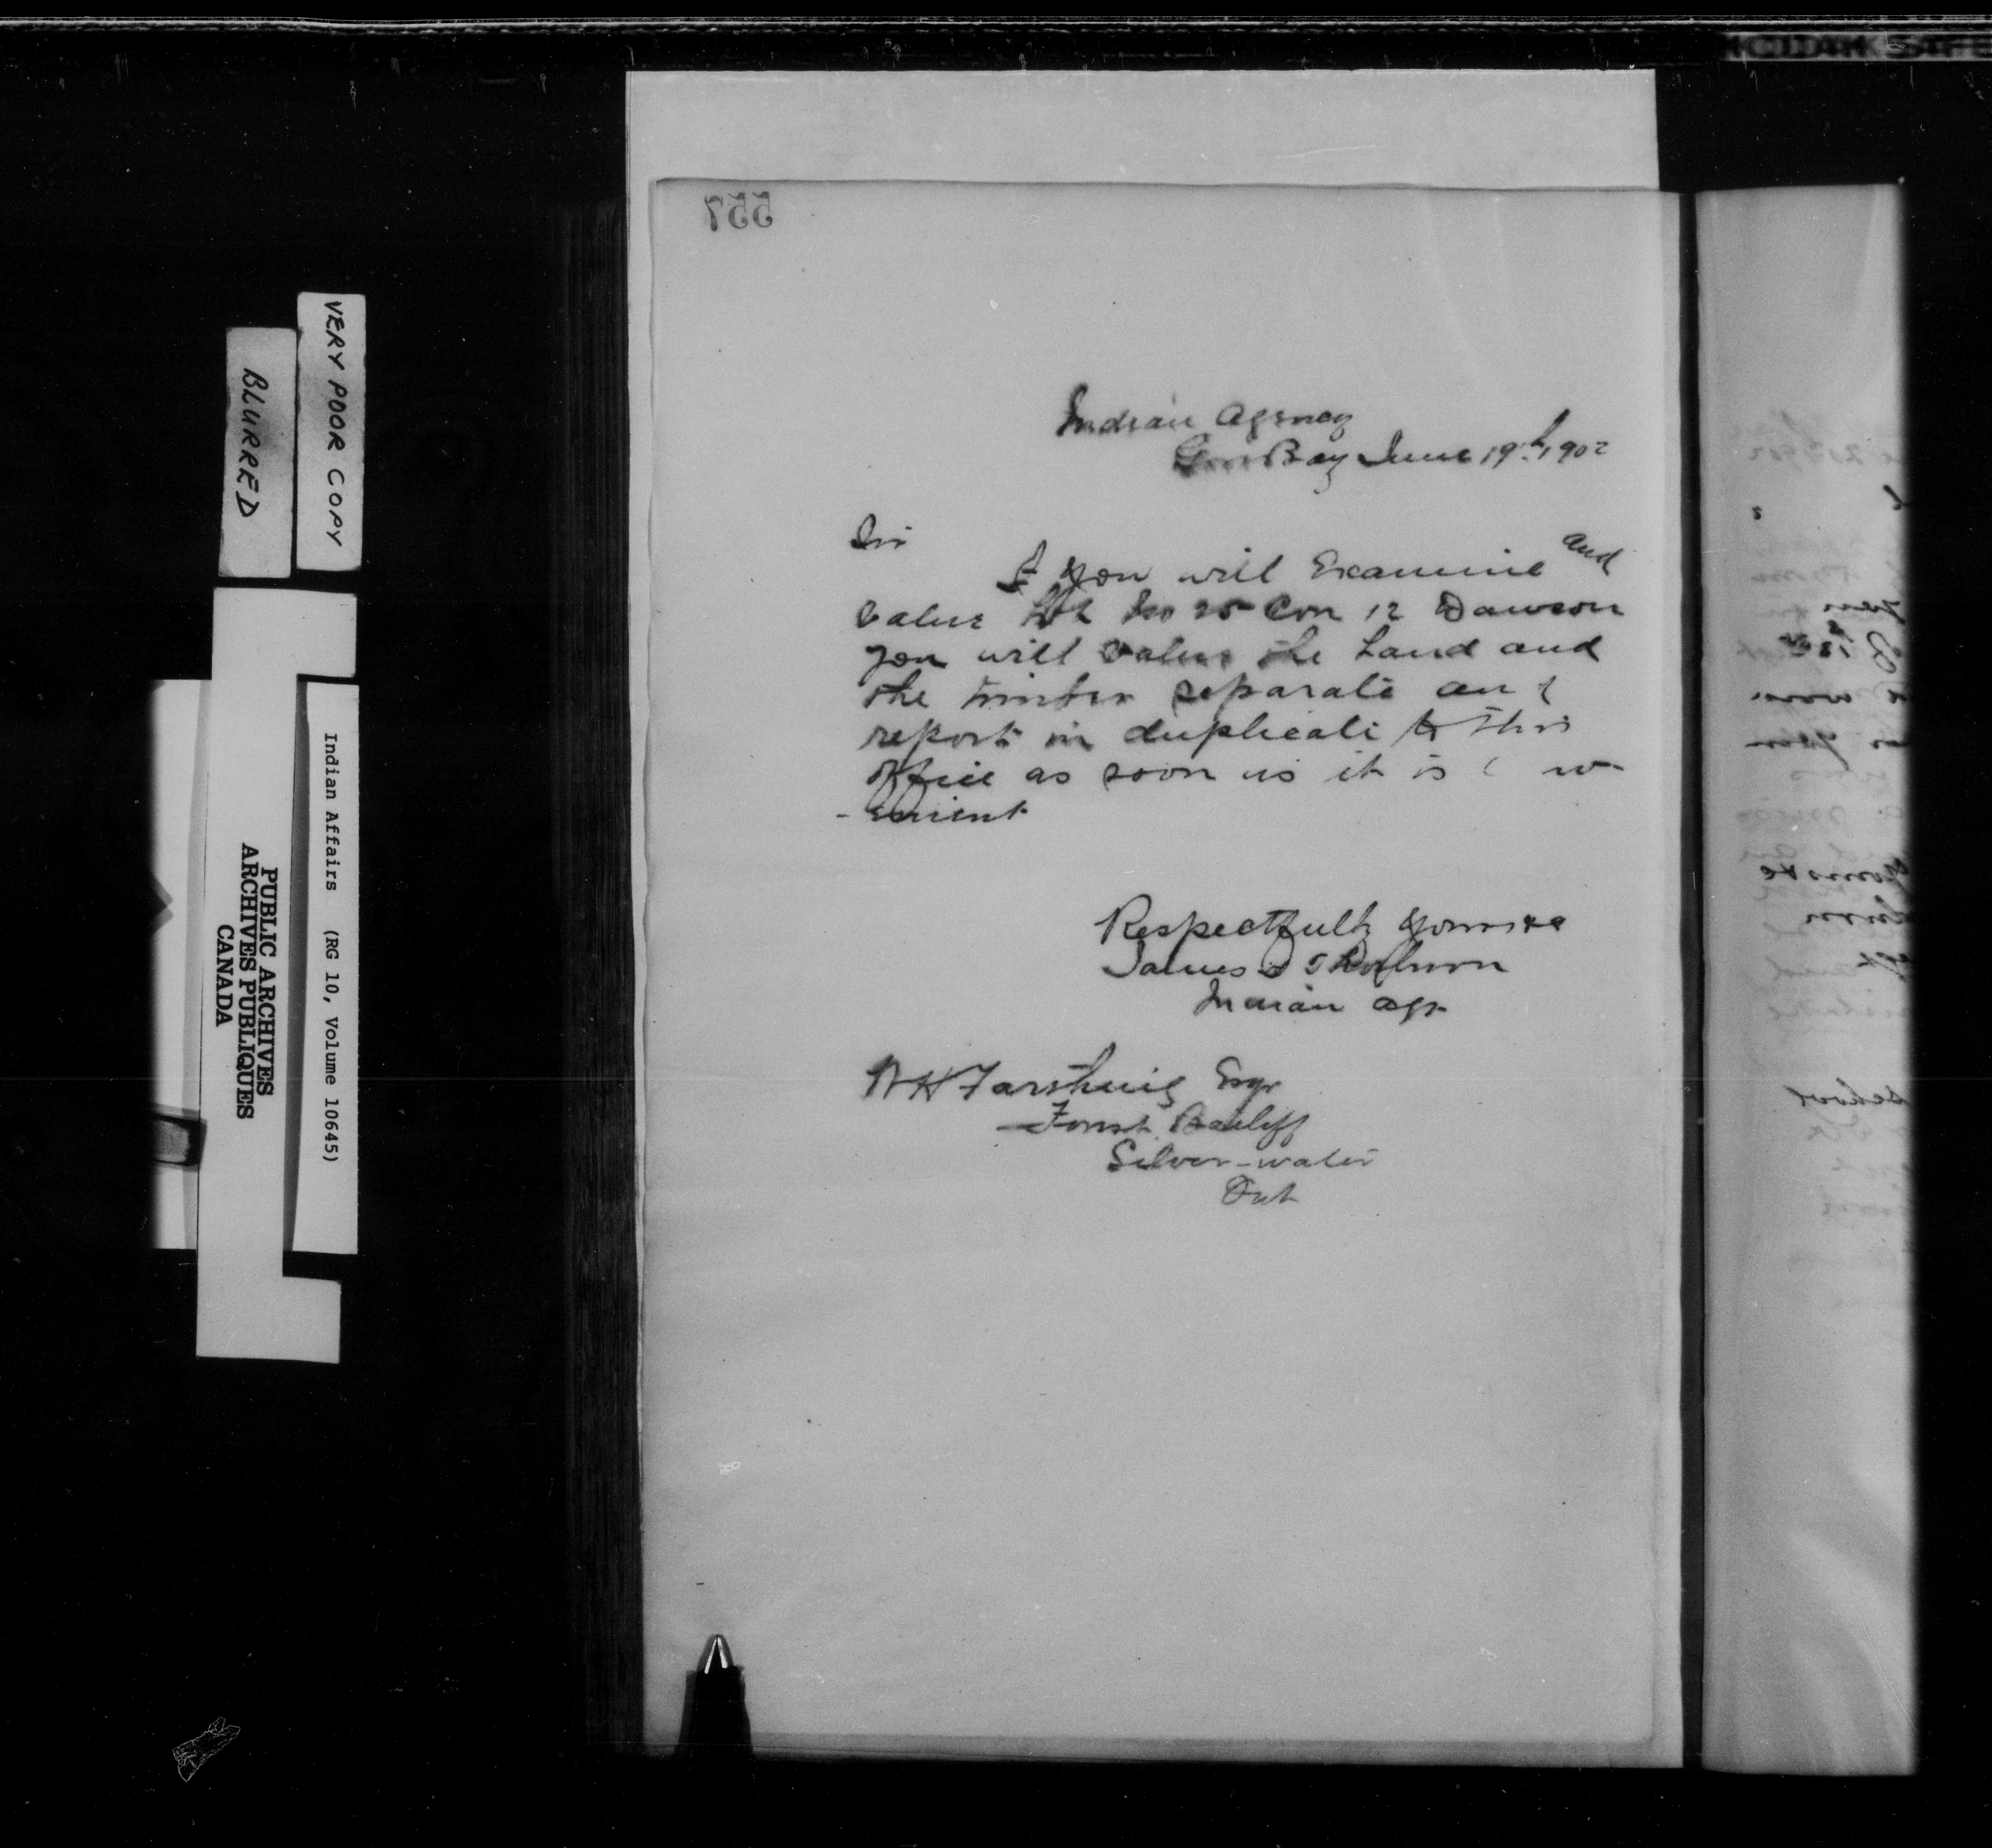 557
Indian Agency
Gore Bay June 19th 1902
Sir
If you will Examine and
value Lot No 25 Con 12 Dawson
you will value the Land and
the timber separate and
report in duplicate to this
office as soon as it is
-enient
Respectfully yours &c
James
Indian Agt
W H Esqr
Forest Bailiff
Silver-water
Ont
VERY POOR COPY
BLURRED
Indian Affairs (RG 10, Volume 10645)
PUBLIC ARCHIVES
ARCHIVES PUBLIQUES
CANADA